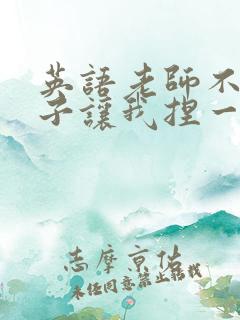 英語老師不
子讓我捏一
志摩京佑
未经同意禁止转载